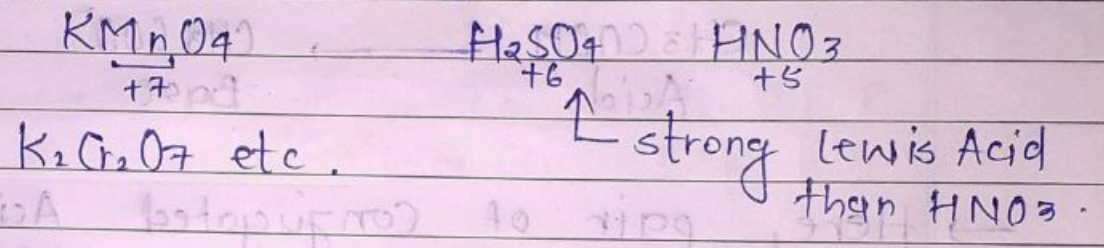 KMnO4 H2SO4 HNO3
+7 +6 +5
K2Cr2O7 etc.
strong Lewis Acid
than HNO3.